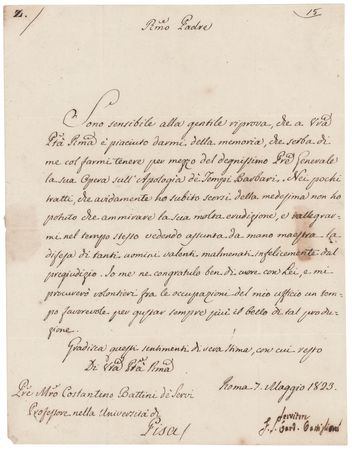 2. 15
Rmo Padre
Sono sensibile alla gentile riprova, che a Vra
Ptà Rma è piaciuto darmi della memoria, che serba di
me col farmi tenere per mezzo del degnissimo Pre Generale
la sua Opera sull'Apologia di Tempj Barbari. Nei pochi
tratti, che avidamente ho subito scorsi della medesima non ho
potuto che ammirare la sua molta erudizione, e rallegrar-
mi nel tempo stesso vedendo assunta da mano maestra la
difesa di tanti uomini valenti malmenati infelicemente dal
pregiudizio. Io me ne congratulo ben di cuore con Lei, e mi
procurerò volontieri fra le occupazioni del mio ufficio un tem-
po favorevole per gustar sempre più il bello di tal produ-
zione.
Gradisca questi sentimenti di vera stima, con cui resto
Di Vra Ptà Rma
Roma 7. Maggio 1823.
Pre Mro Costantino Battini de' Servi
Professore nella Università di
Pisa
Servitore
Card. Castiglioni